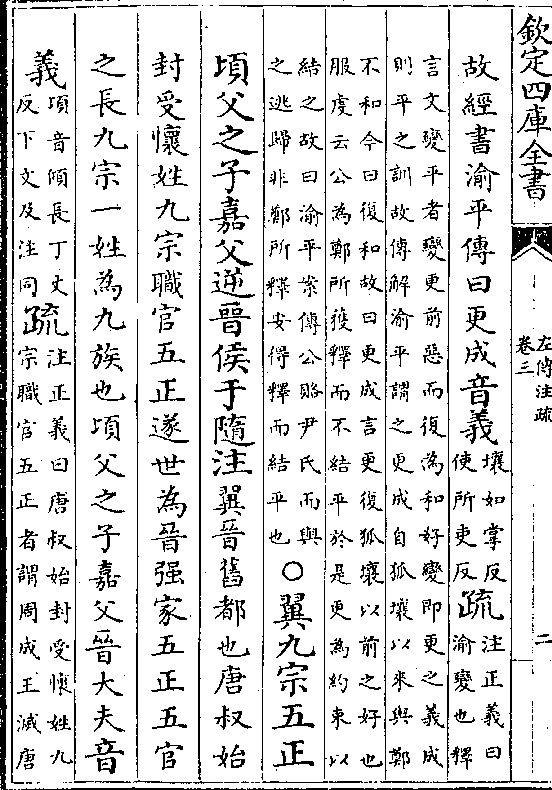 欽定四庫全書
左傳注疏
卷三
二
故經書渝平傳曰更成音義壤如掌反使所吏反疏注正義曰渝變也釋
言文變平者變更前惡而復為和好變即更之義成
則平之訓故傳解渝平謂之更成自狐壤以來與鄭
不和今曰復和故曰更成言更復狐壤以前之好也
服虔云公為鄭所獲釋而不結平於是更為約束以
結之故曰渝平案傳公賂尹氏而與
之逃歸非鄭所釋安得釋而結平也○翼九宗五正
頃父之子嘉父逆晉侯于隨注翼晉舊都也唐叔始
封受懷姓九宗職官五正遂世為晉强家五正五官
之長九宗一姓為九族也頃父之子嘉父晉大夫音
義頃音傾長丁丈反下文及注同疏注正義曰唐叔始封受懷姓九宗職官五正者謂周成王滅唐